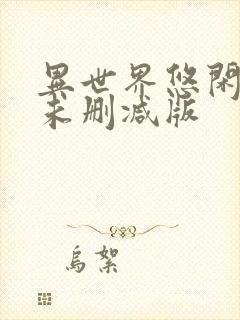 異世界悠閑
未刪減版
烏絮